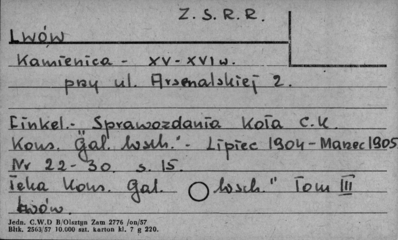 Z. S. R. R.
Lwów
Kamienica - XV-XVI w.
przy ul. Arsenalskiej 2.
Finkel.- Sprawozdania Koła C.K.
Kons. "Gal. Wsch."- Lipiec 1904-Marzec 1905
Nr 22-30. s. 15.
Teka Kons. Gal. Wsch." Tom III
Lwów
Jedn. C.W.D B/Olsztyn Zam 2776 /on/57
Bltk. 2563/57 10.000 szt. karton kl. 7 g 220.